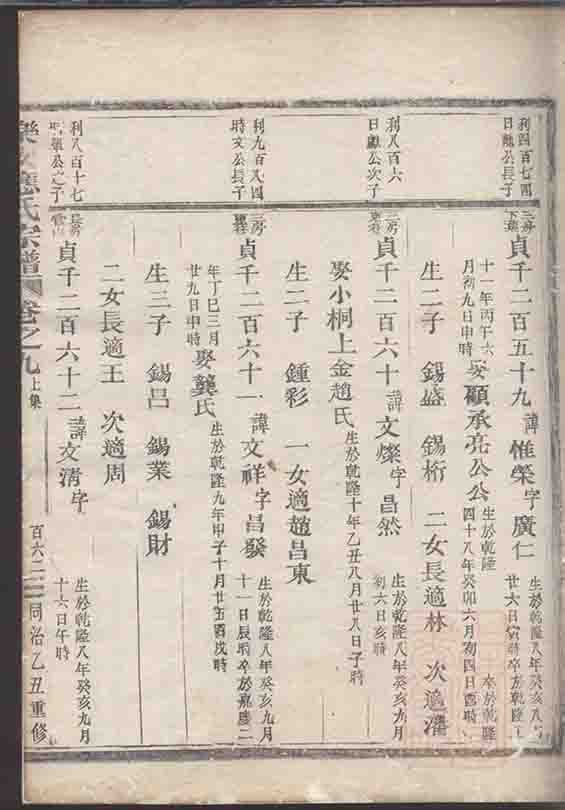 利四百七四
日 公長子
三房
貞千二百五十九 諱惟榮字廣仁 生於乾隆八年癸亥八月
廿六日 時卒於乾隆
十一年丙午六
月初九日申時
娶顧承亮公公 生於乾隆 卒於乾隆
四十八年癸卯六月初四日酉時
生二子 錫盛 錫桁 二女長適林 次適潘
利八百六
日獻公次子
三房
貞千二百六十 諱文燦字昌然 生於乾隆八年癸亥九月
初六日亥時
娶小桐上金趙氏 生於乾隆十年乙丑八月廿八日子時
生二子 鍾彩 一女適趙昌東
利九百又四
時文公長子
三房
貞千二百六十一 諱文祥字昌發 生於乾隆八年癸亥九月
十一日辰時卒於嘉慶二
年丁巳三月
廿九日申時
娶龔氏 生於乾隆九年甲子十月廿五酉戌時
生三子 錫呂 錫業 錫財
二女長適王 次適周
利八百十七
公之子
長房
貞千二百六十二 諱文清字 生於乾隆八年癸亥九月
十六日午時
應氏宗譜 卷之九上集 百六二 同治乙丑重修